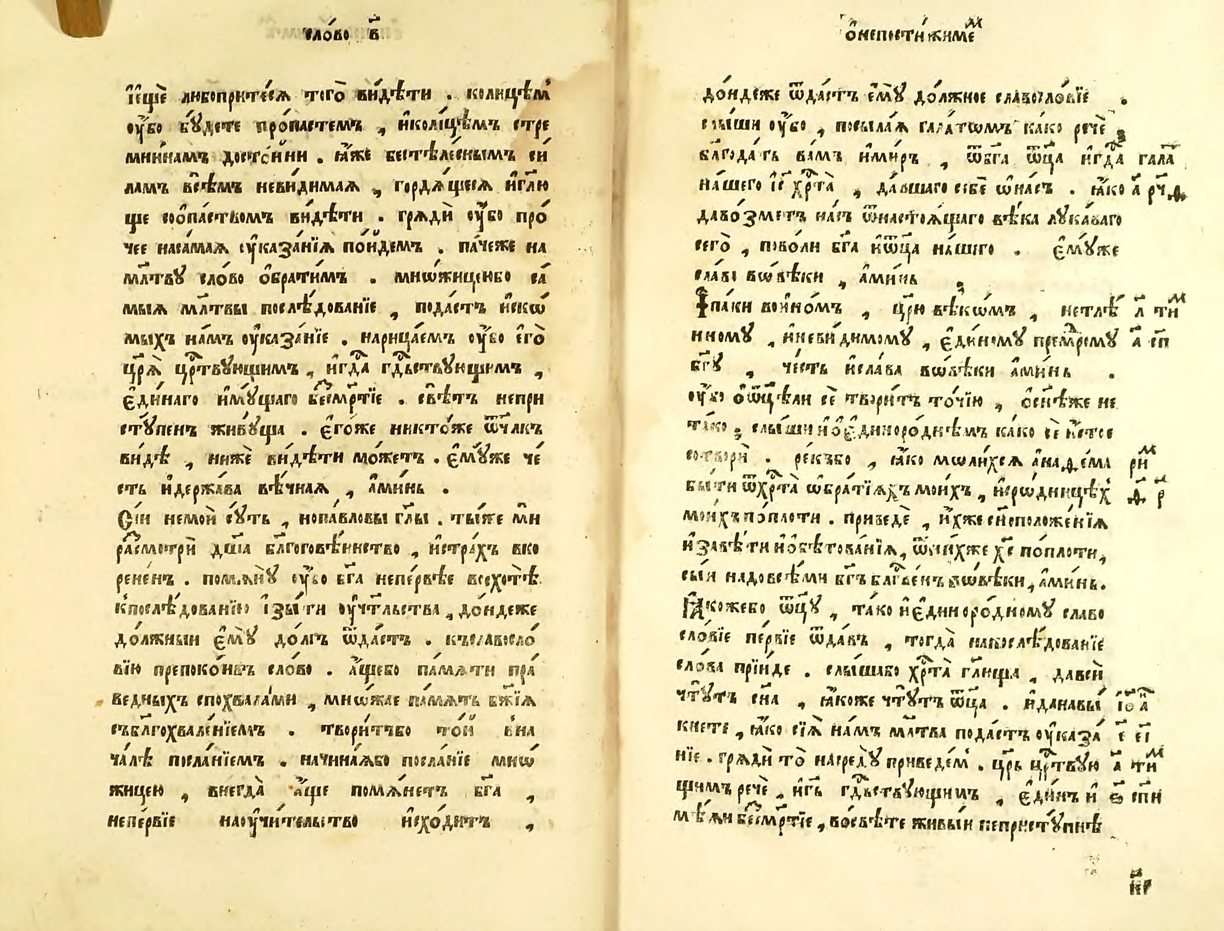 сло́во в҃
І҆ещѐ любоприте́сѧ того̀ ви́дѣти . коли́цѣм
ѹ҆́бо бꙋ́дете про́пастемъ , и҆коли́цѣмъ стре
мни́намъ досто́йни . ꙗ҆́же бестѣле́снымъ си́
ламъ всѣ́мъ неви́димаѧ , гордѧ́щесѧ и҆глю́
ще соо́паствомъ ви́дѣти . грѧдѝ ѹ҆́бо про́
чее насамаѧ ѹ҆каза́нїѧ по́йдемъ . па́чеже на
мл҃твꙋ сло́во ѡ҆брати́мъ . мнѡ́жицеюбо са́
мыѧ мл҃твы послѣ́дованїе , пода́стъ и҆ско́
мыхъ на́мъ ѹ҆каза́нїе . нарица́емъ ѹ҆́бо его̀
цр҃ѧ̀ црⷭ҇твꙋющимъ , и҆гдⷭ҇а гдⷭ҇ьствꙋющимъ ,
є҆ди́наго и҆мꙋ́щаго бесм҃ртїе . свѣ́тъ непри
стꙋ́пенъ живꙋ́ща . є҆го́же никто́же ѿчл҃къ
ви́дѣ , нижѐ ви́дѣти мо́жетъ . є҆мꙋ́же че́
сть и҆держа́ва вѣ́чнаѧ , а҆ми́нь .
Сїѝ немоѝ сꙋ́ть , нопа́вловы гл҃ы . ты́же мѝ
расмотрѝ дш҃а бл҃гоговѣ́инство , и҆стра́хъ вко
рене́нъ . помѧнꙋ̀ ѹ҆́бо бг҃а непе́рвѣе восхотѣ̀
кпослѣ́дованїю и҆зы́ти ѹ҆чт҃льства , до́ндеже
до́лжныи є҆мꙋ̀ до́лгъ ѿда́стъ . къславосло́
вїю препоко́ивъ сло́во . а҆́щебо па́мѧти пра́
ведныхъ спохвала́ми , мнѡ́жае па́мѧть бж҃їѧ
съблгохвале́нїемъ . твори́тъбо то́й вна
ча́лѣ посла́нїемъ . начина́ѧбо посла́нїе мнѡ́
жицею , внегда̀ а҆́ще помѧне́тъ бг҃а ,
непе́рвїе наѹ҆чи́тельство и҆схо́дитъ ,
ѡ҆непости́жимеⷨ
до́ндеже ѿда́стъ є҆мꙋ̀ до́лжное славосло́вїе .
слы́ши ѹ҆́бо , посыла́ѧ гала́тѡмъ ка́ко речѐ ,
бл҃года́ть ва́мъ и҆ми́ръ , ѿбг҃а ѿц҃а и҆гдⷭ҇а гала҃
на́шего і҆с҃ хрⷭ҇та̀ , да́вшаго себѐ ѡ҆на́съ . ꙗ҆́ко а҃ рч҃ѳ
даво́зметъ на́съ ѿнастоѧ́щаго вѣ́ка лꙋка́ваго
сего̀ , пово́ли бг҃а и҆ѿц҃а на́шего . є҆мꙋ́же
сла́ва вѡвѣ́ки , а҆ми́нь ,
І҆па́ки воино́мъ , цр҃ю вѣкѡ́мъ , нетлѣ́ л҃ тиⷨ
нномꙋ , и҆неви́димомꙋ , є҆ди́номꙋ премⷣромꙋ а҃ сп
бг҃ꙋ , че́сть и҆сла́ва вѡвѣ́ки а҆ми́нь .
ѹ҆́бо ѡ҆ѿц҃ѣли сѐ твори́тъ то́чїю , ѡ҆сн҃ѣже не
та́ко , слы́ши и҆ѡ҆є҆диноро́днѣмъ ка́ко сѐ и҆сте
сотворѝ . реквбо , ꙗ҆́ко моли́хсѧ а҆на́ѳема риⷨ
бы́ти ѿхрⷭ҇та̀ ѡ҆бра́тїѧхъ мои́хъ , и҆сро́дницѣⷯ ѳ҃ р
мои́хъ по́плоти . приведѐ , и҆́хже сн҃оположе́нїѧ
и҆завѣ́ти и҆ѡ҆бѣтова́нїѧ , ѿни́хже хс҃ по́плоти ,
сы́и надовсѣ́ми бг҃ъ блг҃ве́нъ вѡвѣ́ки , а҆ми́нь .
Ꙗ҆́кожебо ѿц҃ꙋ , та́ко и҆є҆диноро́дномꙋ славо
сло́вїе пе́рвїе ѿда́въ , тогда̀ напослѣ́дованїе
сло́ва прїи́де . слы́шабо хрⷭ҇та̀ гл҃юща , давсѝ
чтꙋ́тъ сн҃а , ꙗ҆́коже чтꙋ́тъ ѿц҃а . и҆данавы́ і҆ѡ҃а
кнете , ꙗ҆́ко сїѧ̀ на́мъ мл҃тва пода́стъ ѹ҆каза́ є҃ еі
нїе . грѧдѝ то̀ насредꙋ̀ приведе́м . цр҃ь црⷭ҇твꙋю а҃ тиⷨ
щимъ речѐ , и҆гь҃ гдⷭ҇ьствꙋющимъ , є҆ди́нъ и҆ ѕ҃ спи
мѣ́ѧи бесм҃ртїе , восвѣ́те живы́и непристꙋ́пнѣ
н҃г